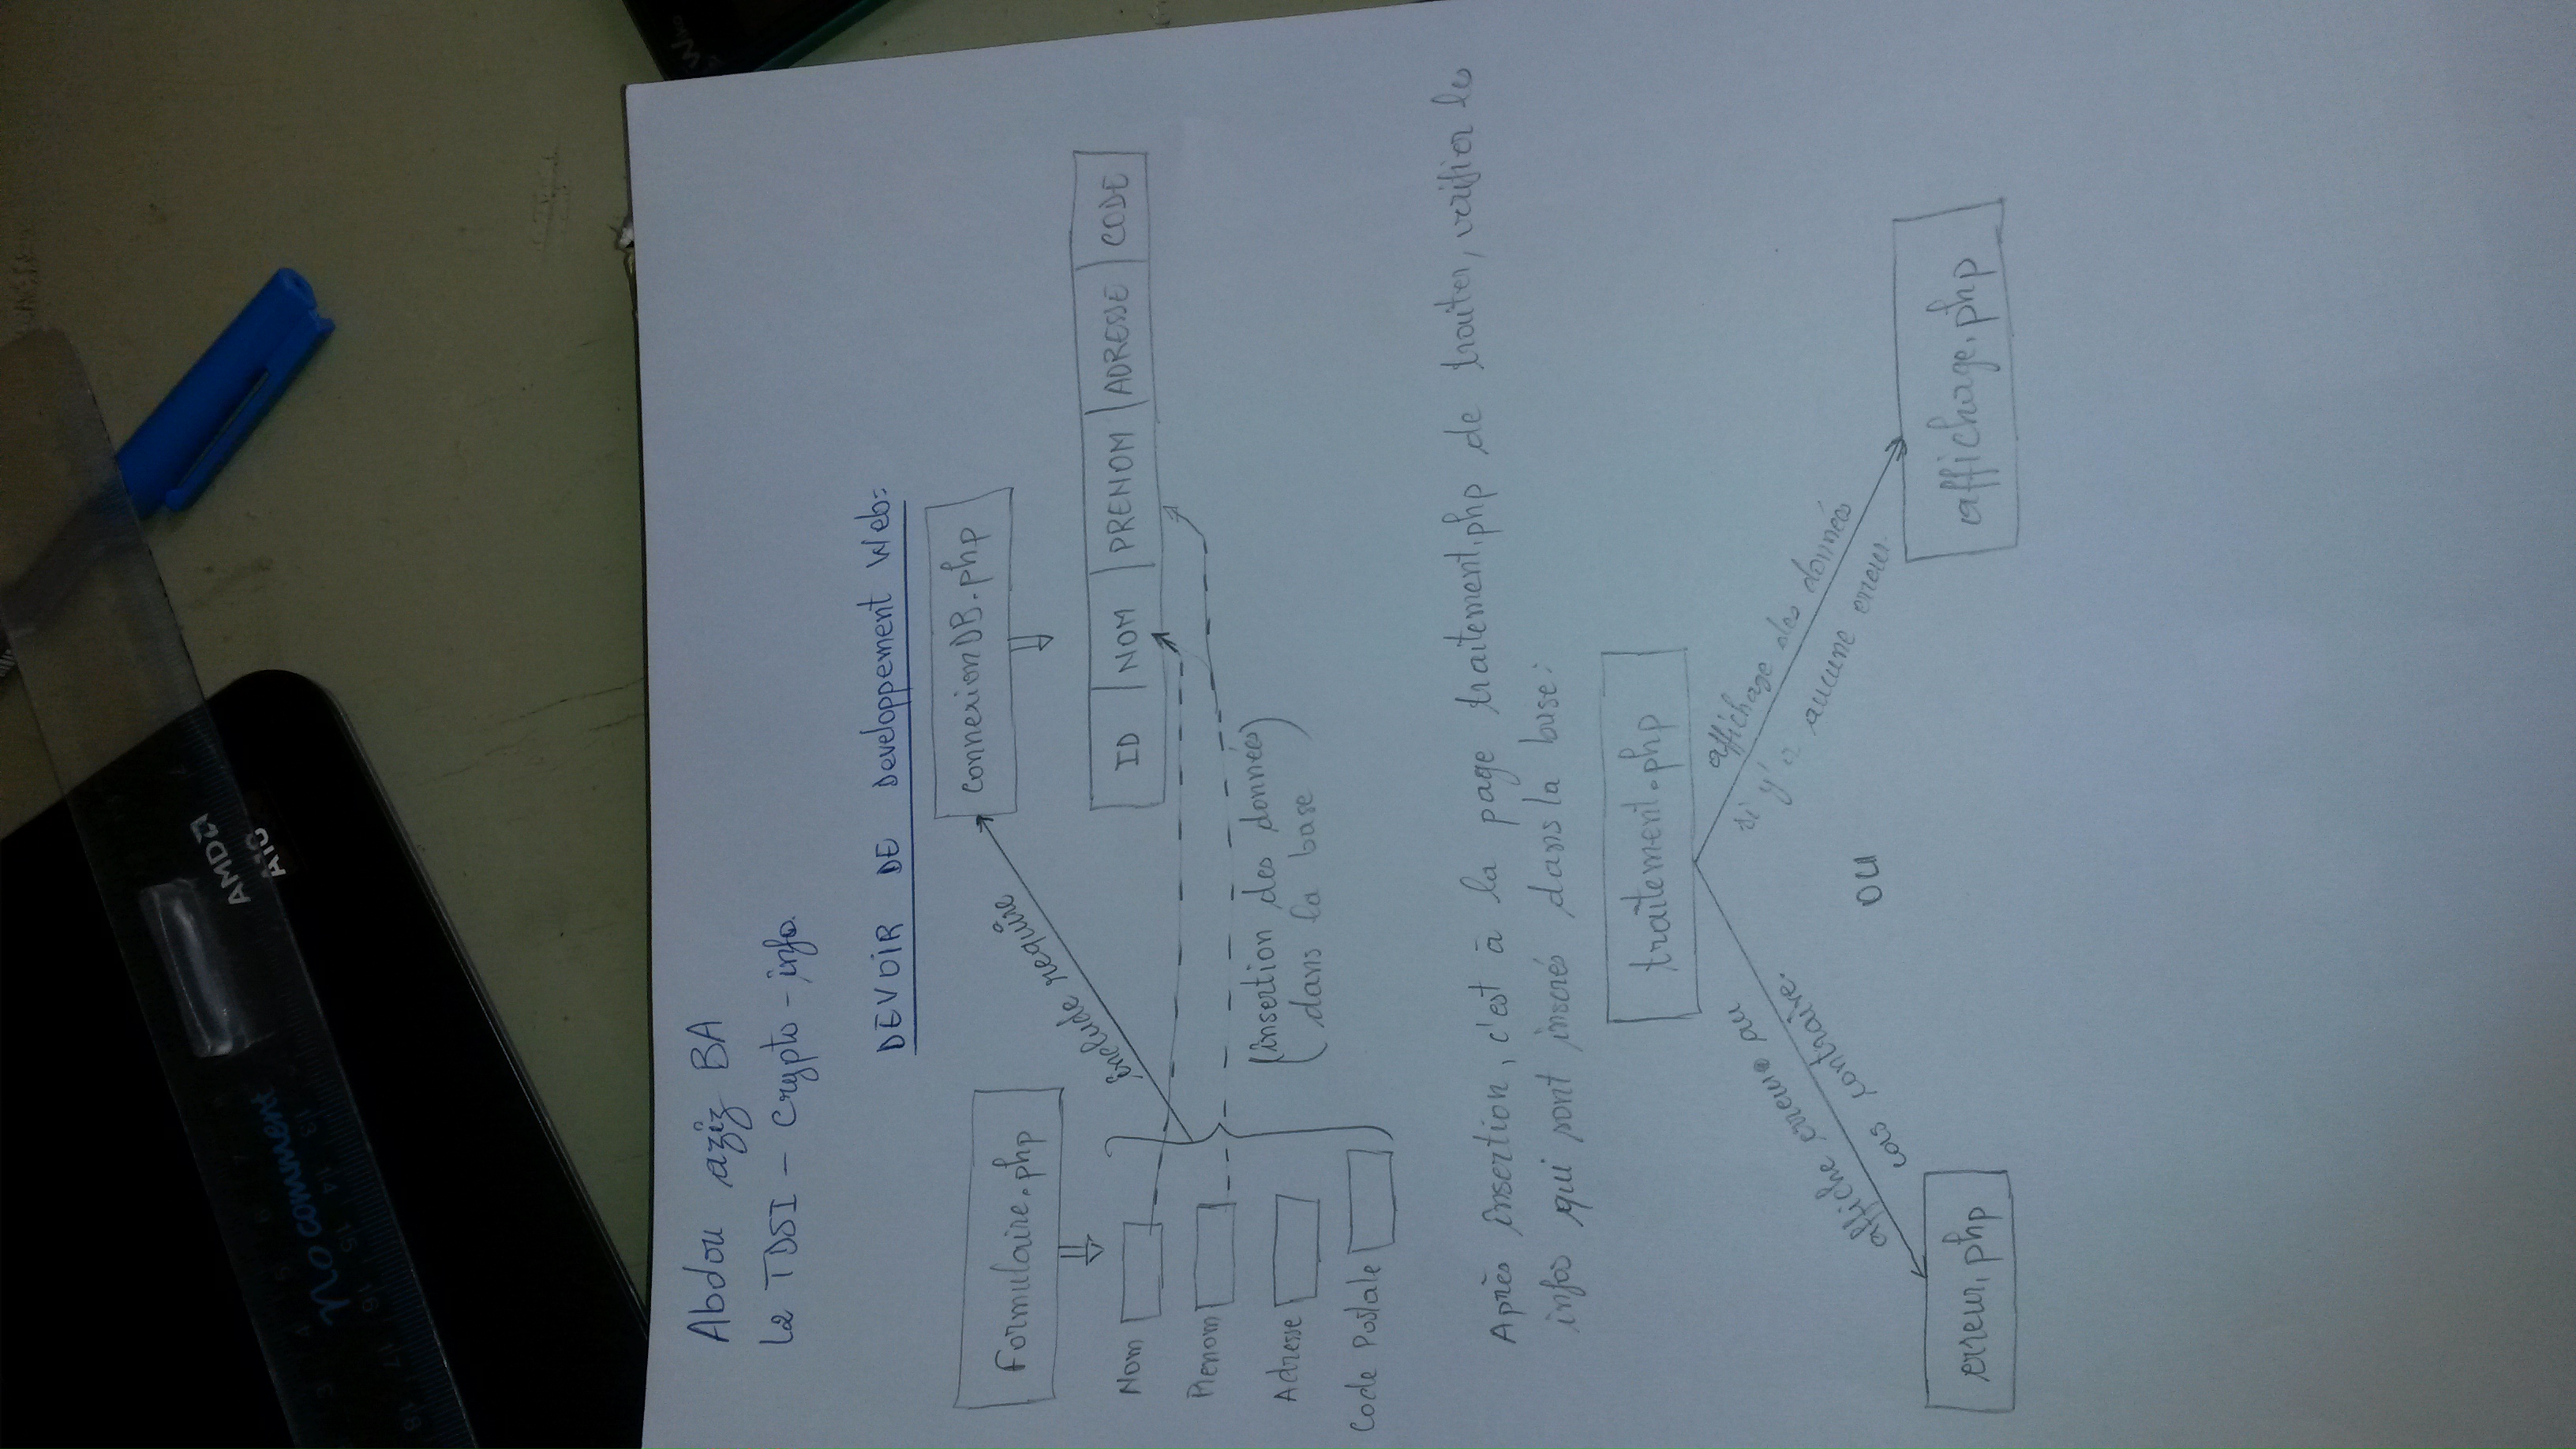 AMD
A10
No comment
13
14
15
16
17
18
Abdou aziz BA
L2 TDSI - Crypto - info.
DEVOIR DE Developpement Web:
Formulaire.php
connexionDB.php
include require
Nom
Prenom
Adresse
Code Postale
ID NOM PRENOM ADRESSE CODE
(insertion des données
dans la base)
Après insertion, c'est à la page traitement.php de traiter, verifier les
infos qui sont inscrés dans la base:
traitement.php
affiche erreur au
cas contraire.
ou
affichage des données
si y'a aucune erreur.
erreur.php
affichage.php